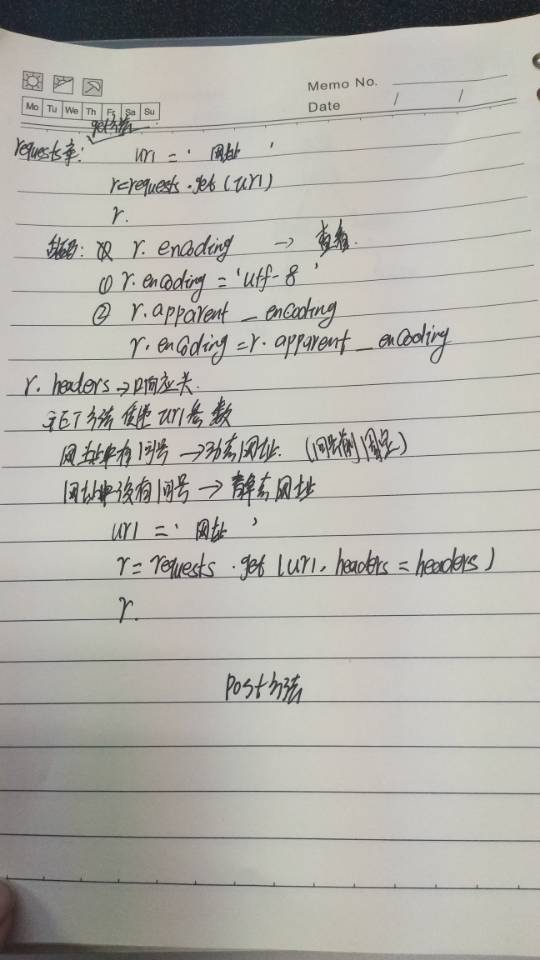 Memo No.
Mo Tu We Th Fr Sa Su
Date / /
get方法
requests库: url = ' 网址 '
r=requests.get(url)
r.
r.encoding → 查看.
① r.encoding = 'utf-8'
② r.apparent_encoding
r.encoding=r.apparent_encoding
r.headers → 响应头.
GET方法 传递 url参数
网址中有问号 → 动态网址. (问号前固定)
网址中没有问号 → 静态网址
url = ' 网址 '
r = requests.get (url, headers = headers)
r.
Post方法